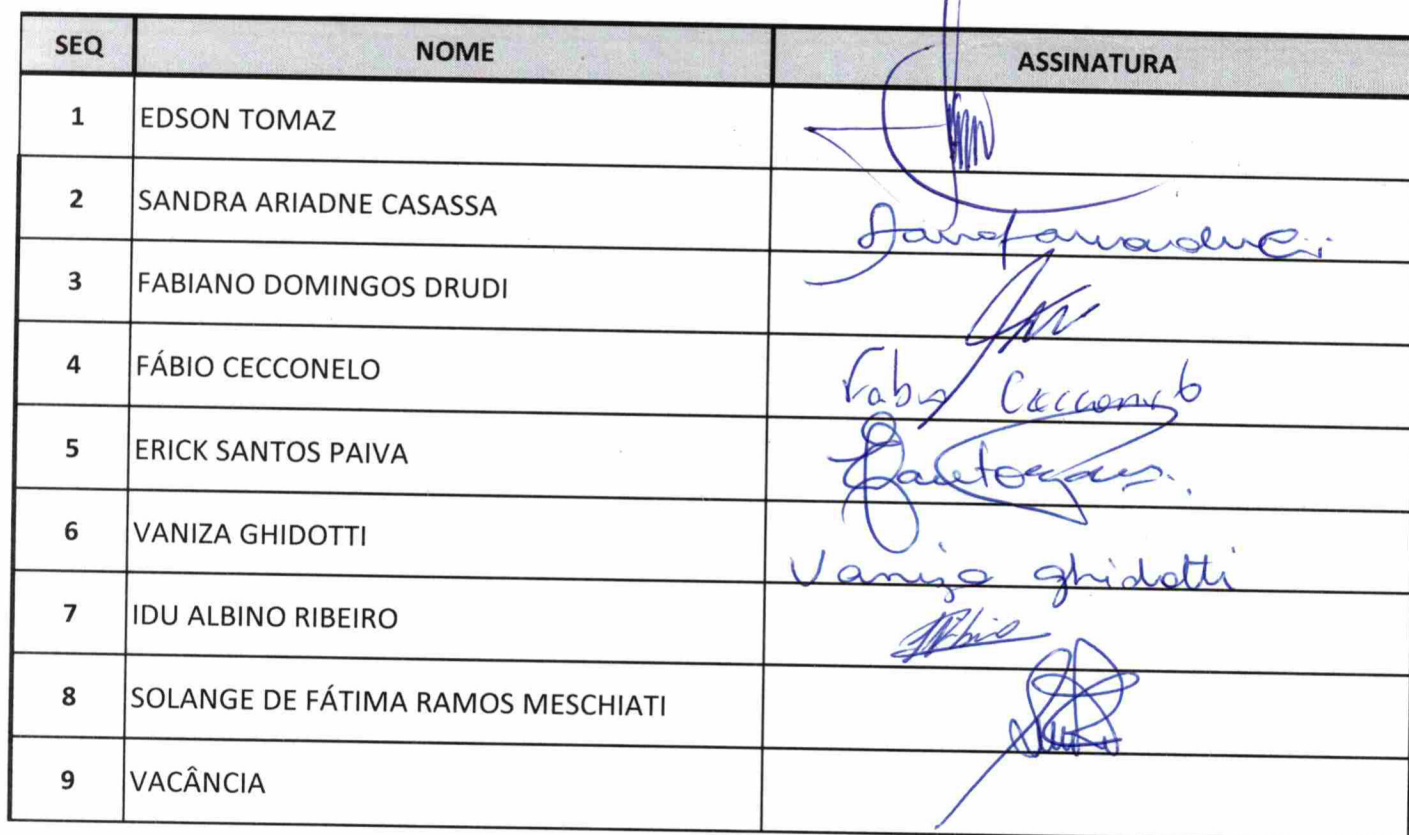 SEQ NOME ASSINATURA
1 EDSON TOMAZ
2 SANDRA ARIADNE CASASSA
3 FABIANO DOMINGOS DRUDI
4 FÁBIO CECCONELO Fabio Cecconelo
5 ERICK SANTOS PAIVA
6 VANIZA GHIDOTTI Vaniza ghidotti
7 IDU ALBINO RIBEIRO
8 SOLANGE DE FÁTIMA RAMOS MESCHIATI
9 VACÂNCIA